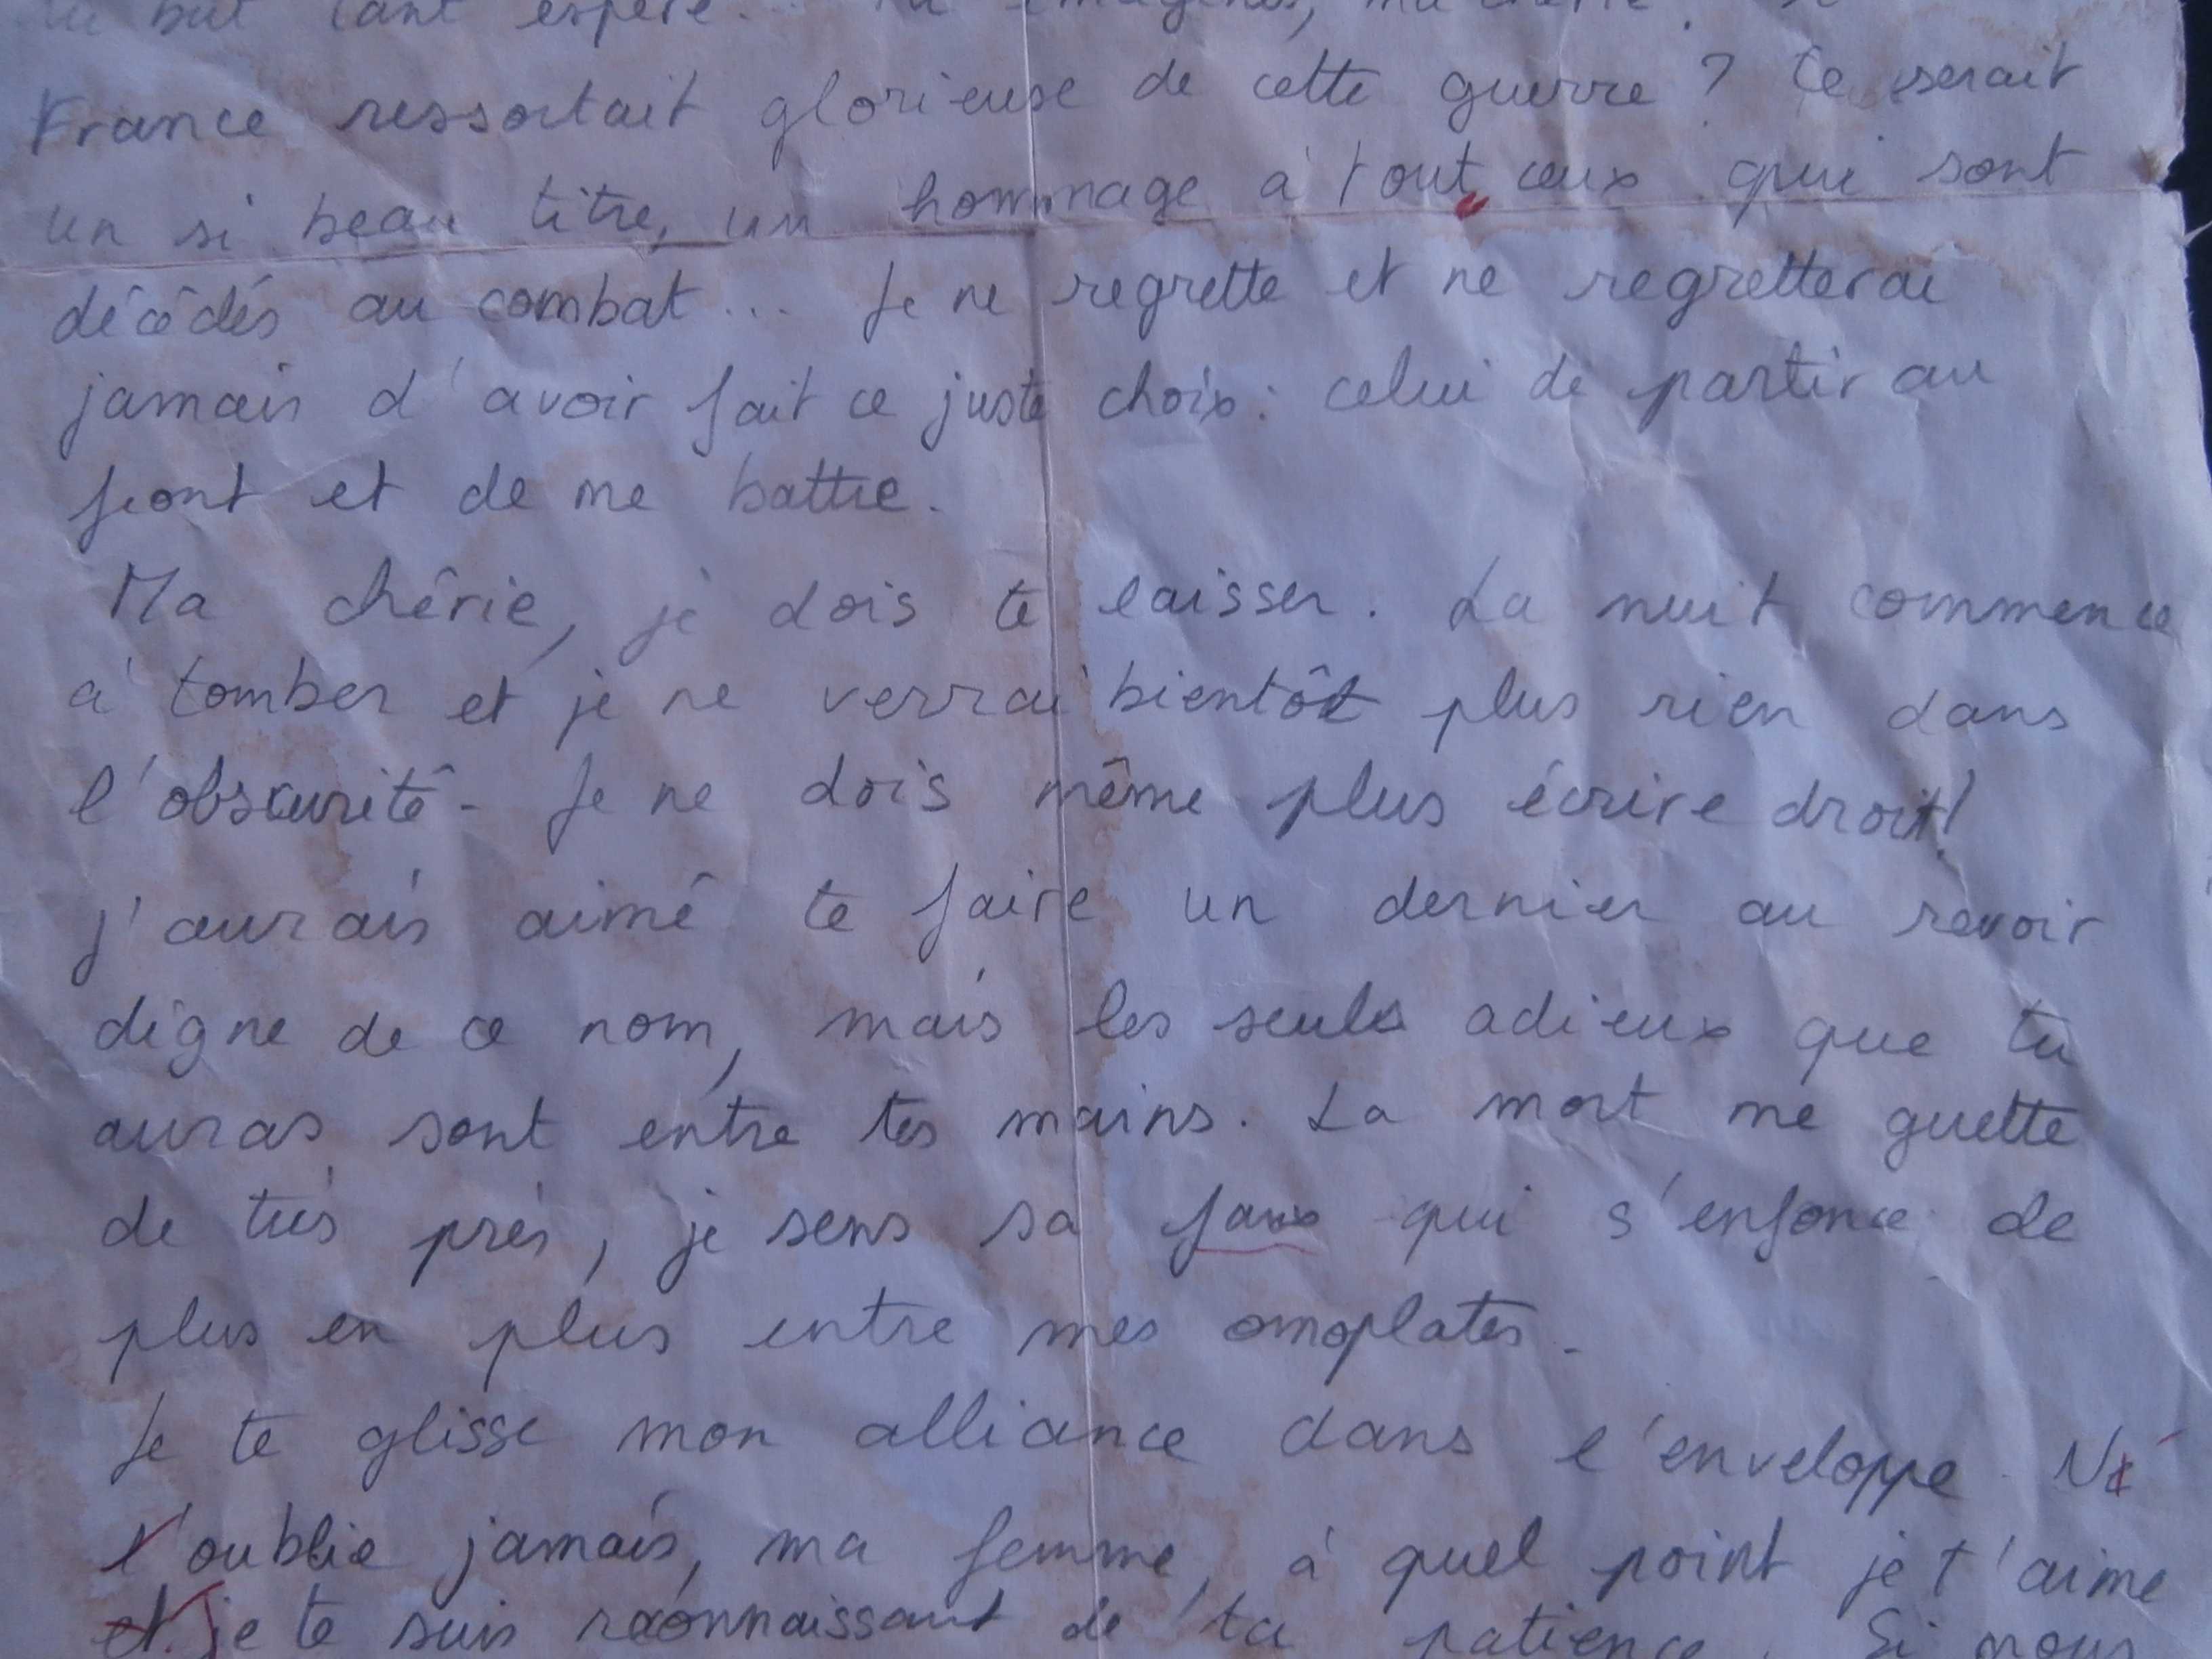 but tant espéré... Tu imagines, ma chérie.
France ressortait glorieuse de cette guerre ? Ce serait
un si beau titre, un hommage à tout ceux qui sont
décédés au combat... Je ne regrette et ne regretterai
jamais d'avoir fait ce juste choix : celui de partir au
front et de me battre.
Ma chérie, je dois te laisser. La nuit commence
à tomber et je ne verrai bientôt plus rien dans
l'obscurité. Je ne dois même plus écrire droit !
j'aurais aimé te faire un dernier au revoir
digne de ce nom, mais les seuls adieux que tu
auras sont entre tes mains. La mort me guette
de très près, je sens sa faux qui s'enfonce de
plus en plus entre mes omoplates.
Je te glisse mon alliance dans l'enveloppe. N
l'oublie jamais, ma femme, à quel point je t'aime
et je te suis reconnaissant de ta patience. Si nous